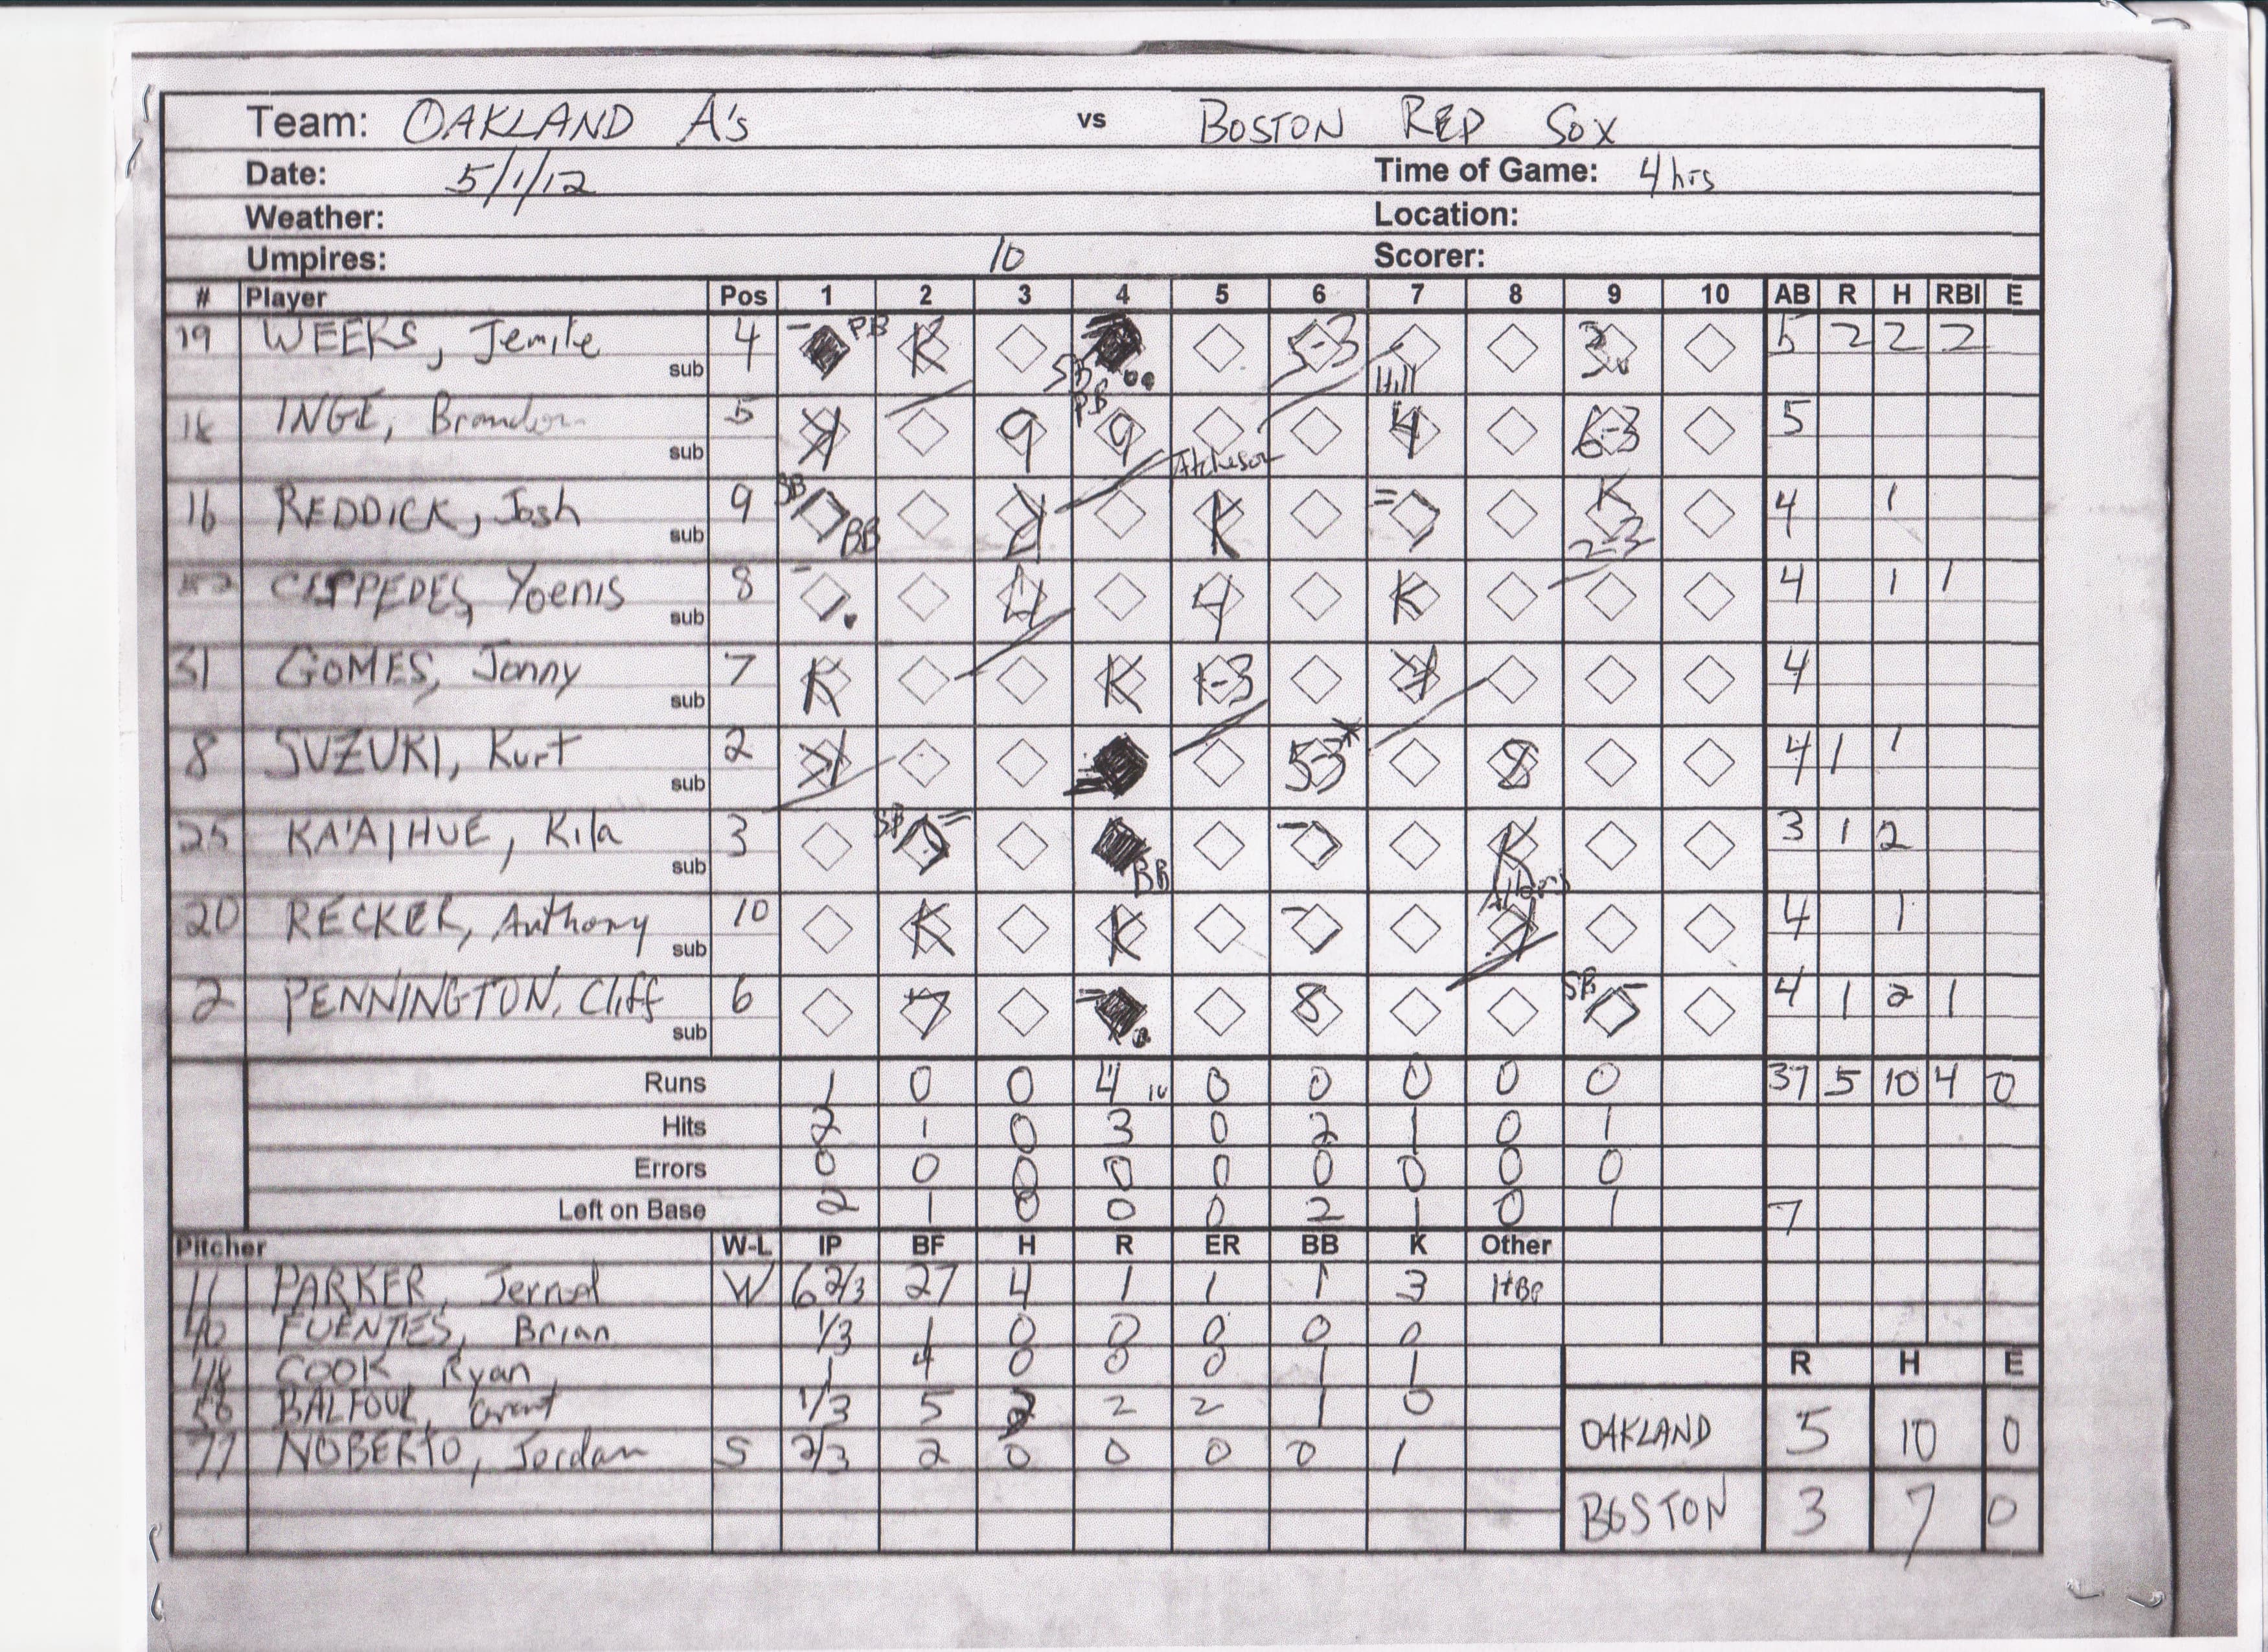 Team: OAKLAND A's vs BOSTON RED SOX
Date: 5/1/12 Time of Game: 4 hrs
Weather: Location:
Umpires: 10 Scorer:
# Player Pos 1 2 3 4 5 6 7 8 9 10 AB R H RBI E
19 WEEKS, Jemile 4 PB K SB 5-3 Hill 3u 5 2 2 2
sub
18 INGE, Brandon 5 K 9 PB 9 4 6-3 5
sub Atchison
16 REDDICK, Josh 9 SB BB K K 2-3 4 1
sub
52 CESPEDES, Yoenis 8 4 4 K 4 1 1
sub
31 GOMES, Jonny 7 K K 1-3 4
sub
8 SUZUKI, Kurt 2 53* 8 4 1 1
sub
25 KA'AIHUE, Kila 3 SB BB K 3 1 2
sub
20 RECKER, Anthony 10 K K Albers 4 1
sub
2 PENNINGTON, Cliff 6 7 8 SB 4 1 2 1
sub
Runs 1 0 0 4 0 0 0 0 0 37 5 10 4 0
Hits 2 1 0 3 0 2 1 0 1
Errors 0 0 0 0 0 0 0 0 0
Left on Base 2 1 0 0 0 2 1 0 1 7
Pitcher W-L IP BF H R ER BB K Other
11 PARKER, Jerrod W 6 2/3 27 4 1 1 1 3 HBP
40 FUENTES, Brian 1/3 1 0 0 0 0 0
48 COOK, Ryan 1 4 0 0 0 1 1
R H E
56 BALFOUR, Grant 1/3 5 3 2 2 1 0
OAKLAND 5 10 0
77 NOBERTO, Jordan S 2/3 2 0 0 0 0 1
BOSTON 3 7 0